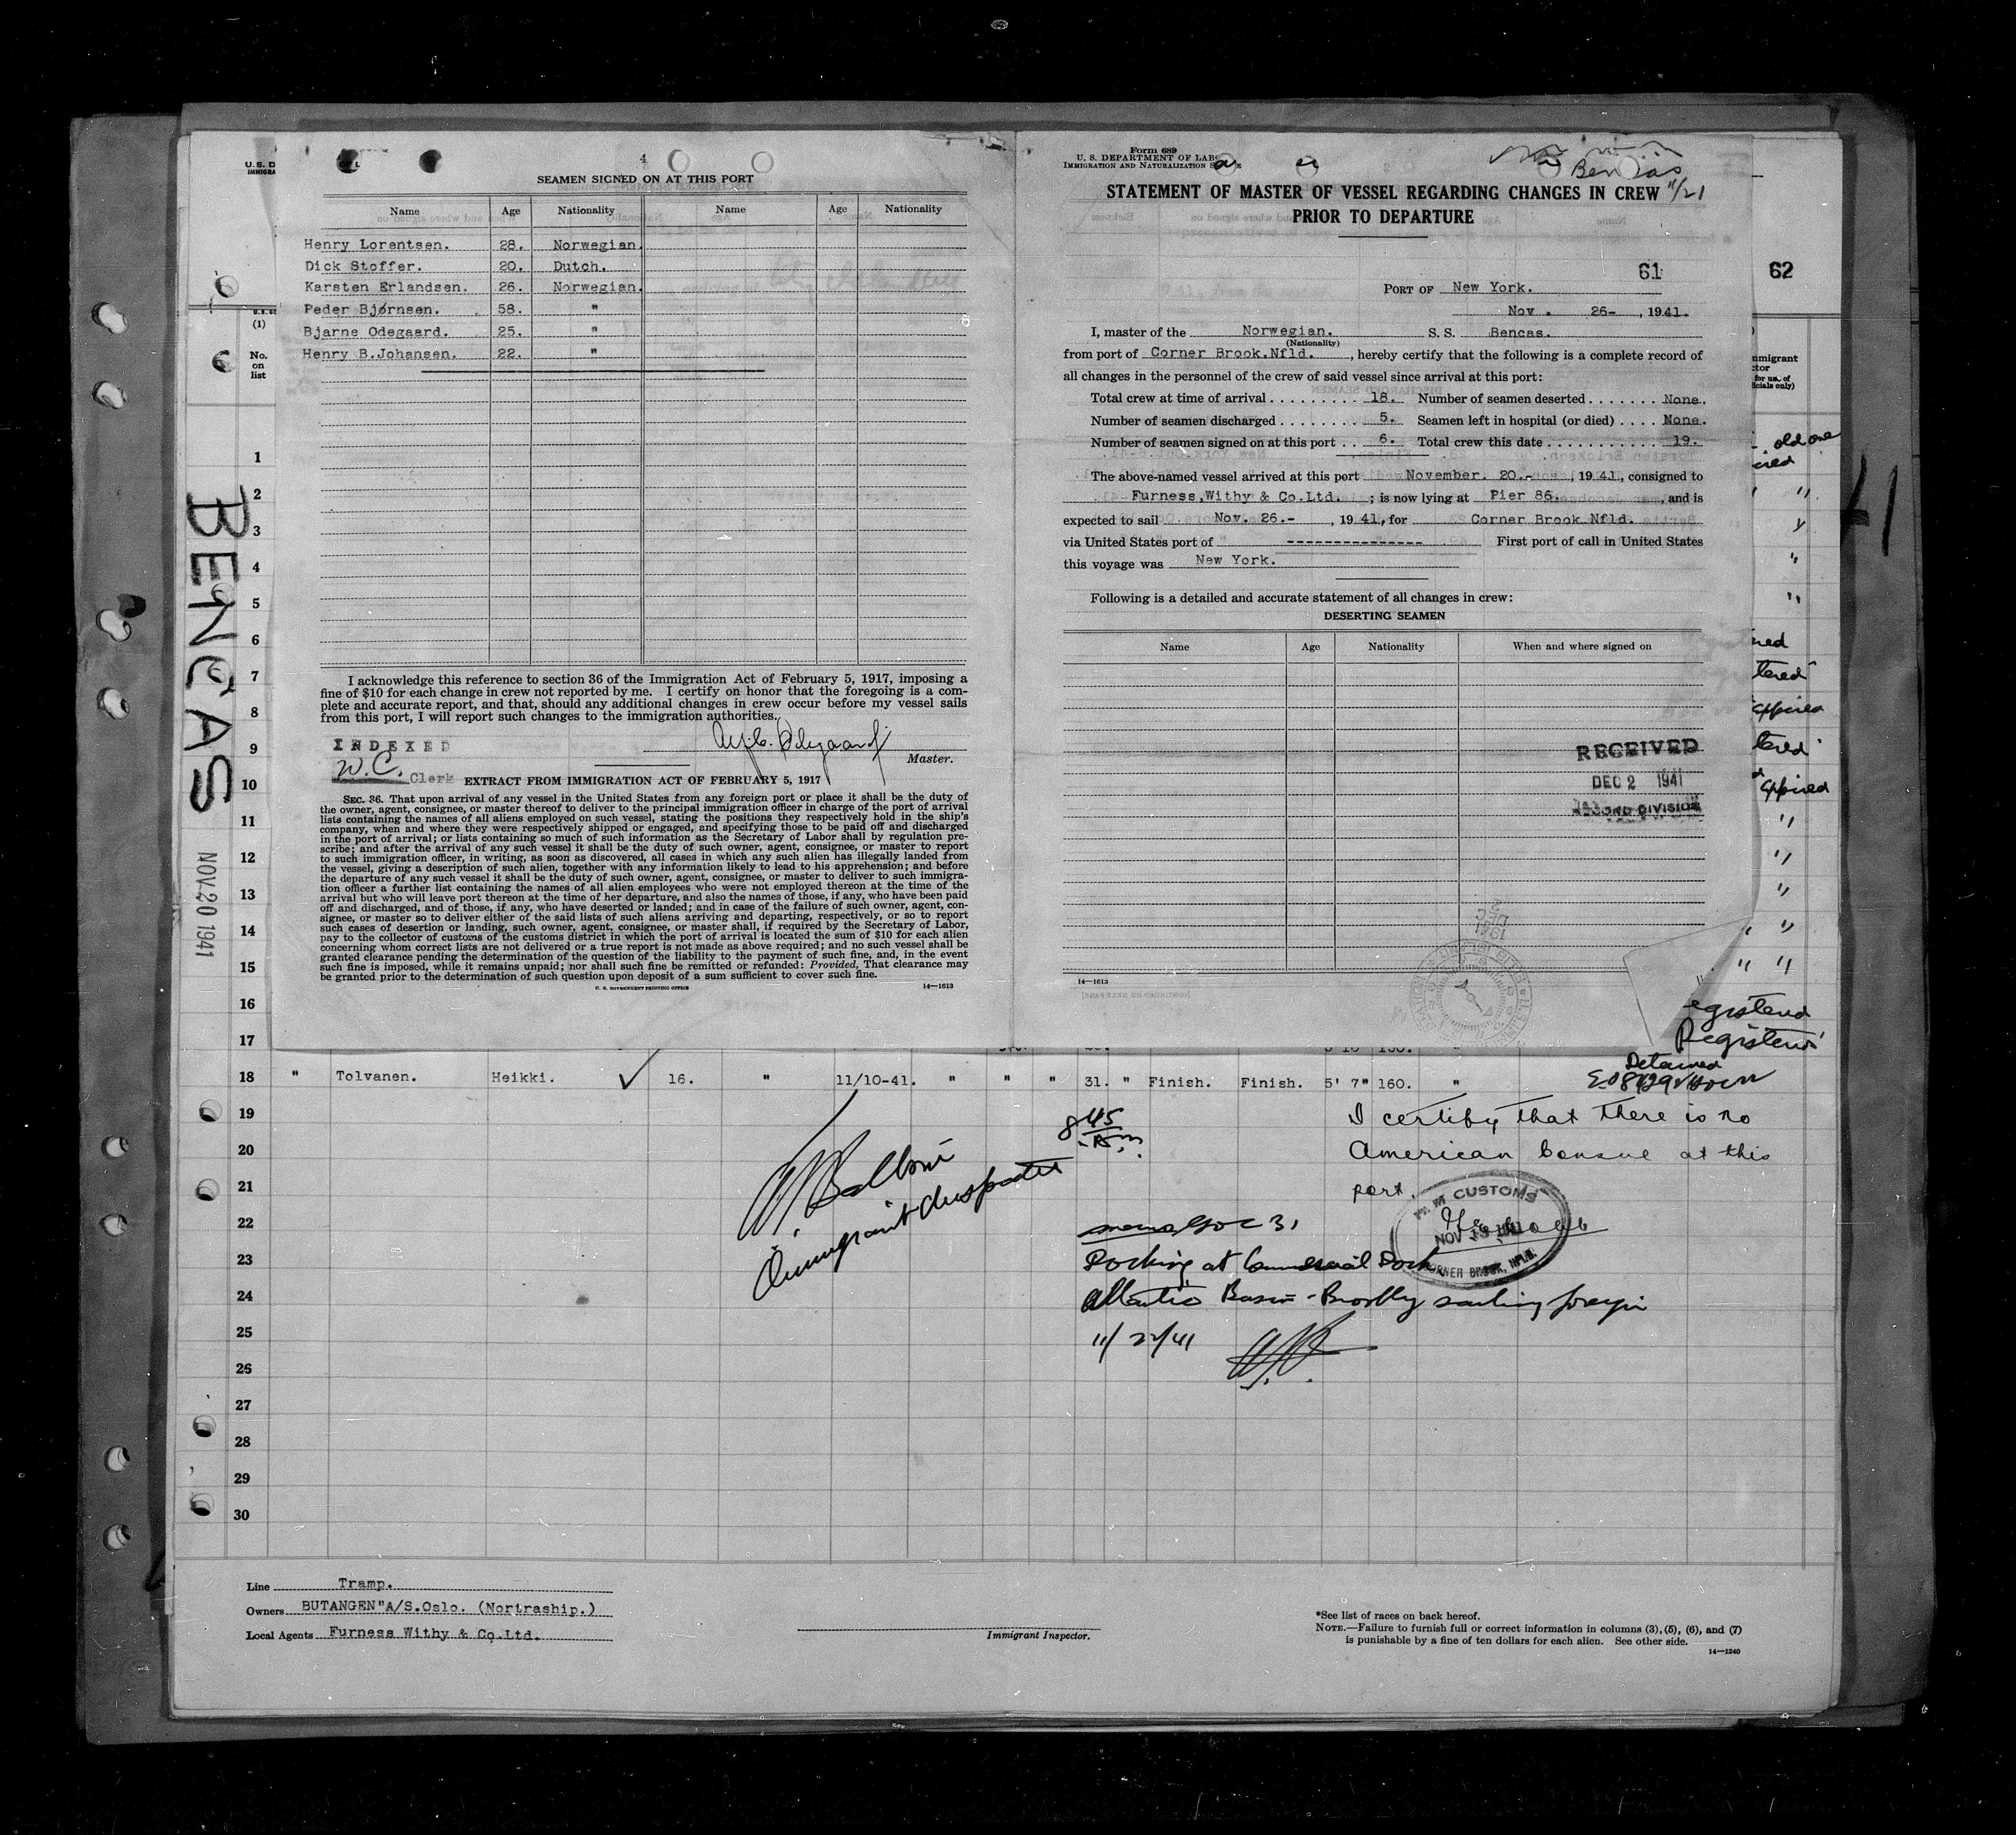 U.S. D
IMMIGRA
4
SEAMEN SIGNED ON AT THIS PORT
Name Age Nationality Name Age Nationality
Henry Lorentsen. 28. Norwegian.
Dick Stoffer. 20. Dutch.
Karsten Erlandsen. 26. Norwegian.
Peder Bjørnsen. 58. "
Bjarne Odegaard. 25. "
Henry B.Johansen. 22. "
I acknowledge this reference to section 36 of the Immigration Act of February 5, 1917, imposing a
fine of $10 for each change in crew not reported by me. I certify on honor that the foregoing is a com-
plete and accurate report, and that, should any additional changes in crew occur before my vessel sails
from this port, I will report such changes to the immigration authorities.
INDEXED
W.C. Clerk
Master.
EXTRACT FROM IMMIGRATION ACT OF FEBRUARY 5, 1917
SEC. 36. That upon arrival of any vessel in the United States from any foreign port or place it shall be the duty of
the owner, agent, consignee, or master thereof to deliver to the principal immigration officer in charge of the port of arrival
lists containing the names of all aliens employed on such vessel, stating the positions they respectively hold in the ship's
company, when and where they were respectively shipped or engaged, and specifying those to be paid off and discharged
in the port of arrival; or lists containing so much of such information as the Secretary of Labor shall by regulation pre-
scribe; and after the arrival of any such vessel it shall be the duty of such owner, agent, consignee, or master to report
to such immigration officer, in writing, as soon as discovered, all cases in which any such alien has illegally landed from
the vessel, giving a description of such alien, together with any information likely to lead to his apprehension; and before
the departure of any such vessel it shall be the duty of such owner, agent, consignee, or master to deliver to such immigra-
tion officer a further list containing the names of all alien employees who were not employed thereon at the time of the
arrival but who will leave port thereon at the time of her departure, and also the names of those, if any, who have been paid
off and discharged, and of those, if any, who have deserted or landed; and in case of the failure of such owner, agent, con-
signee, or master so to deliver either of the said lists of such aliens arriving and departing, respectively, or so to report
such cases of desertion or landing, such owner, agent, consignee, or master shall, if required by the Secretary of Labor,
pay to the collector of customs of the customs district in which the port of arrival is located the sum of $10 for each alien
concerning whom correct lists are not delivered or a true report is not made as above required; and no such vessel shall be
granted clearance pending the determination of the question of the liability to the payment of such fine, and, in the event
such fine is imposed, while it remains unpaid; nor shall such fine be remitted or refunded: Provided, That clearance may
be granted prior to the determination of such question upon deposit of a sum sufficient to cover such fine.
U. S. GOVERNMENT PRINTING OFFICE 14—1613
Form 689
U. S. DEPARTMENT OF LABO
IMMIGRATION AND NATURALIZATION S
Bencas
11/21
STATEMENT OF MASTER OF VESSEL REGARDING CHANGES IN CREW
PRIOR TO DEPARTURE
61
PORT OF New York.
Nov. 26- , 1941.
I, master of the Norwegian. S. S. Bencas.
(Nationality)
from port of Corner Brook.Nfld. , hereby certify that the following is a complete record of
all changes in the personnel of the crew of said vessel since arrival at this port:
Total crew at time of arrival 18. Number of seamen deserted None.
Number of seamen discharged 5. Seamen left in hospital (or died) None.
Number of seamen signed on at this port 6. Total crew this date 19.
The above-named vessel arrived at this port November. 20.- , 1941, consigned to
Furness,Withy & Co.Ltd. ; is now lying at Pier 86. , and is
expected to sail Nov. 26.- , 1941, for Corner Brook Nfld.
via United States port of --------------- First port of call in United States
this voyage was New York.
Following is a detailed and accurate statement of all changes in crew:
DESERTING SEAMEN
Name Age Nationality When and where signed on
RECEIVED
DEC 2 1941
SECOND DIVISION
14—1613
62
BENCAS
NOV. 20 1941
(1)
No.
on
list
1
2
3
4
5
6
7
8
9
10
11
12
13
14
15
16
17
mmigrant
ctor
for use of
ficials only)
old one
Registered
Detained
18 " Tolvanen. Heikki. ✓ 16. " 11/10-41. " " " 31. " Finish. Finish. 5' 7" 160. "
19
20
21
22
23
24
25
26
27
28
29
30
8 45
Immigrant Inspector
I certify that there is no
American Consul at this
port.
CUSTOMS
NOV 13 1941
CORNER BROOK, NFLD.
Docking at Commercial Dock
Atlantic Basin - Probably sailing foreign
11/22/41
Line Tramp.
Owners BUTANGEN"A/S.Oslo. (Nortraship.)
Local Agents Furness Withy & Co.Ltd.
Immigrant Inspector.
*See list of races on back hereof.
NOTE.—Failure to furnish full or correct information in columns (3), (5), (6), and (7)
is punishable by a fine of ten dollars for each alien. See other side.
14—1240